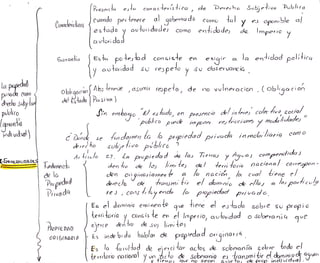 Característica
Presenta esta característica, de Derecho Subjetivo Público
cuando pertenece al gobernado como tal y es oponible al
estado y autoridades como entidades de Imperio y
autoridad
Garantía
Esta potestad consiste en exigir a la entidad política
y autoridad su respeto y su observancia.
la propiedad
privada como
derecho subjetivo
público
(garantía
individual)
Obligación
del Estado
Abstenerse, asuma respeto, de no vulneración. (Obligación
Pasiva)
Sin embargo "el estado, en presencia del interés colectivo social
público puede imponer restricciones y modalidades"
¿Dónde se fundamenta la propiedad privada inmobiliaria como
derecho subjetivo público?
Artículo 27. La propiedad de las Tierras y Aguas comprendidas
dentro de los límites del territorio nacional correspon-
den originariamente a la nación, la cual tiene el
derecho de transmitir el dominio de ellas a los particula
res, constituyendo la propiedad privada.
Fundamento
de la
Propiedad
Privada
PROPIEDAD
ORIGINARIA
Es el dominio eminente que tiene el estado sobre su propio
territorio y consiste en el Imperio, autoridad o soberanía que
ejerce dentro de sus límites
Es indebido hablar de propiedad originaria.
Es la facultad de ejercitar actos de soberanía sobre todo el
territorio nacional y un acto de soberanía es transmitir el dominio de aguas